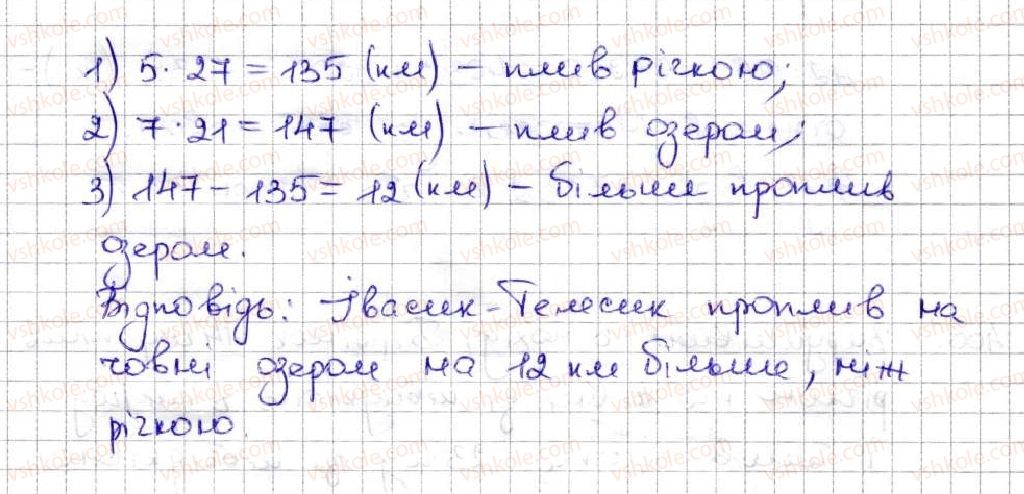 1) 5 · 27 = 135 (км) – плив річкою;
2) 7 · 21 = 147 (км) – плив озером;
3) 147 – 135 = 12 (км) – більше проплив
озером.
Відповідь: Івасик-Телесик проплив на
човні озером на 12 км більше, ніж
річкою.